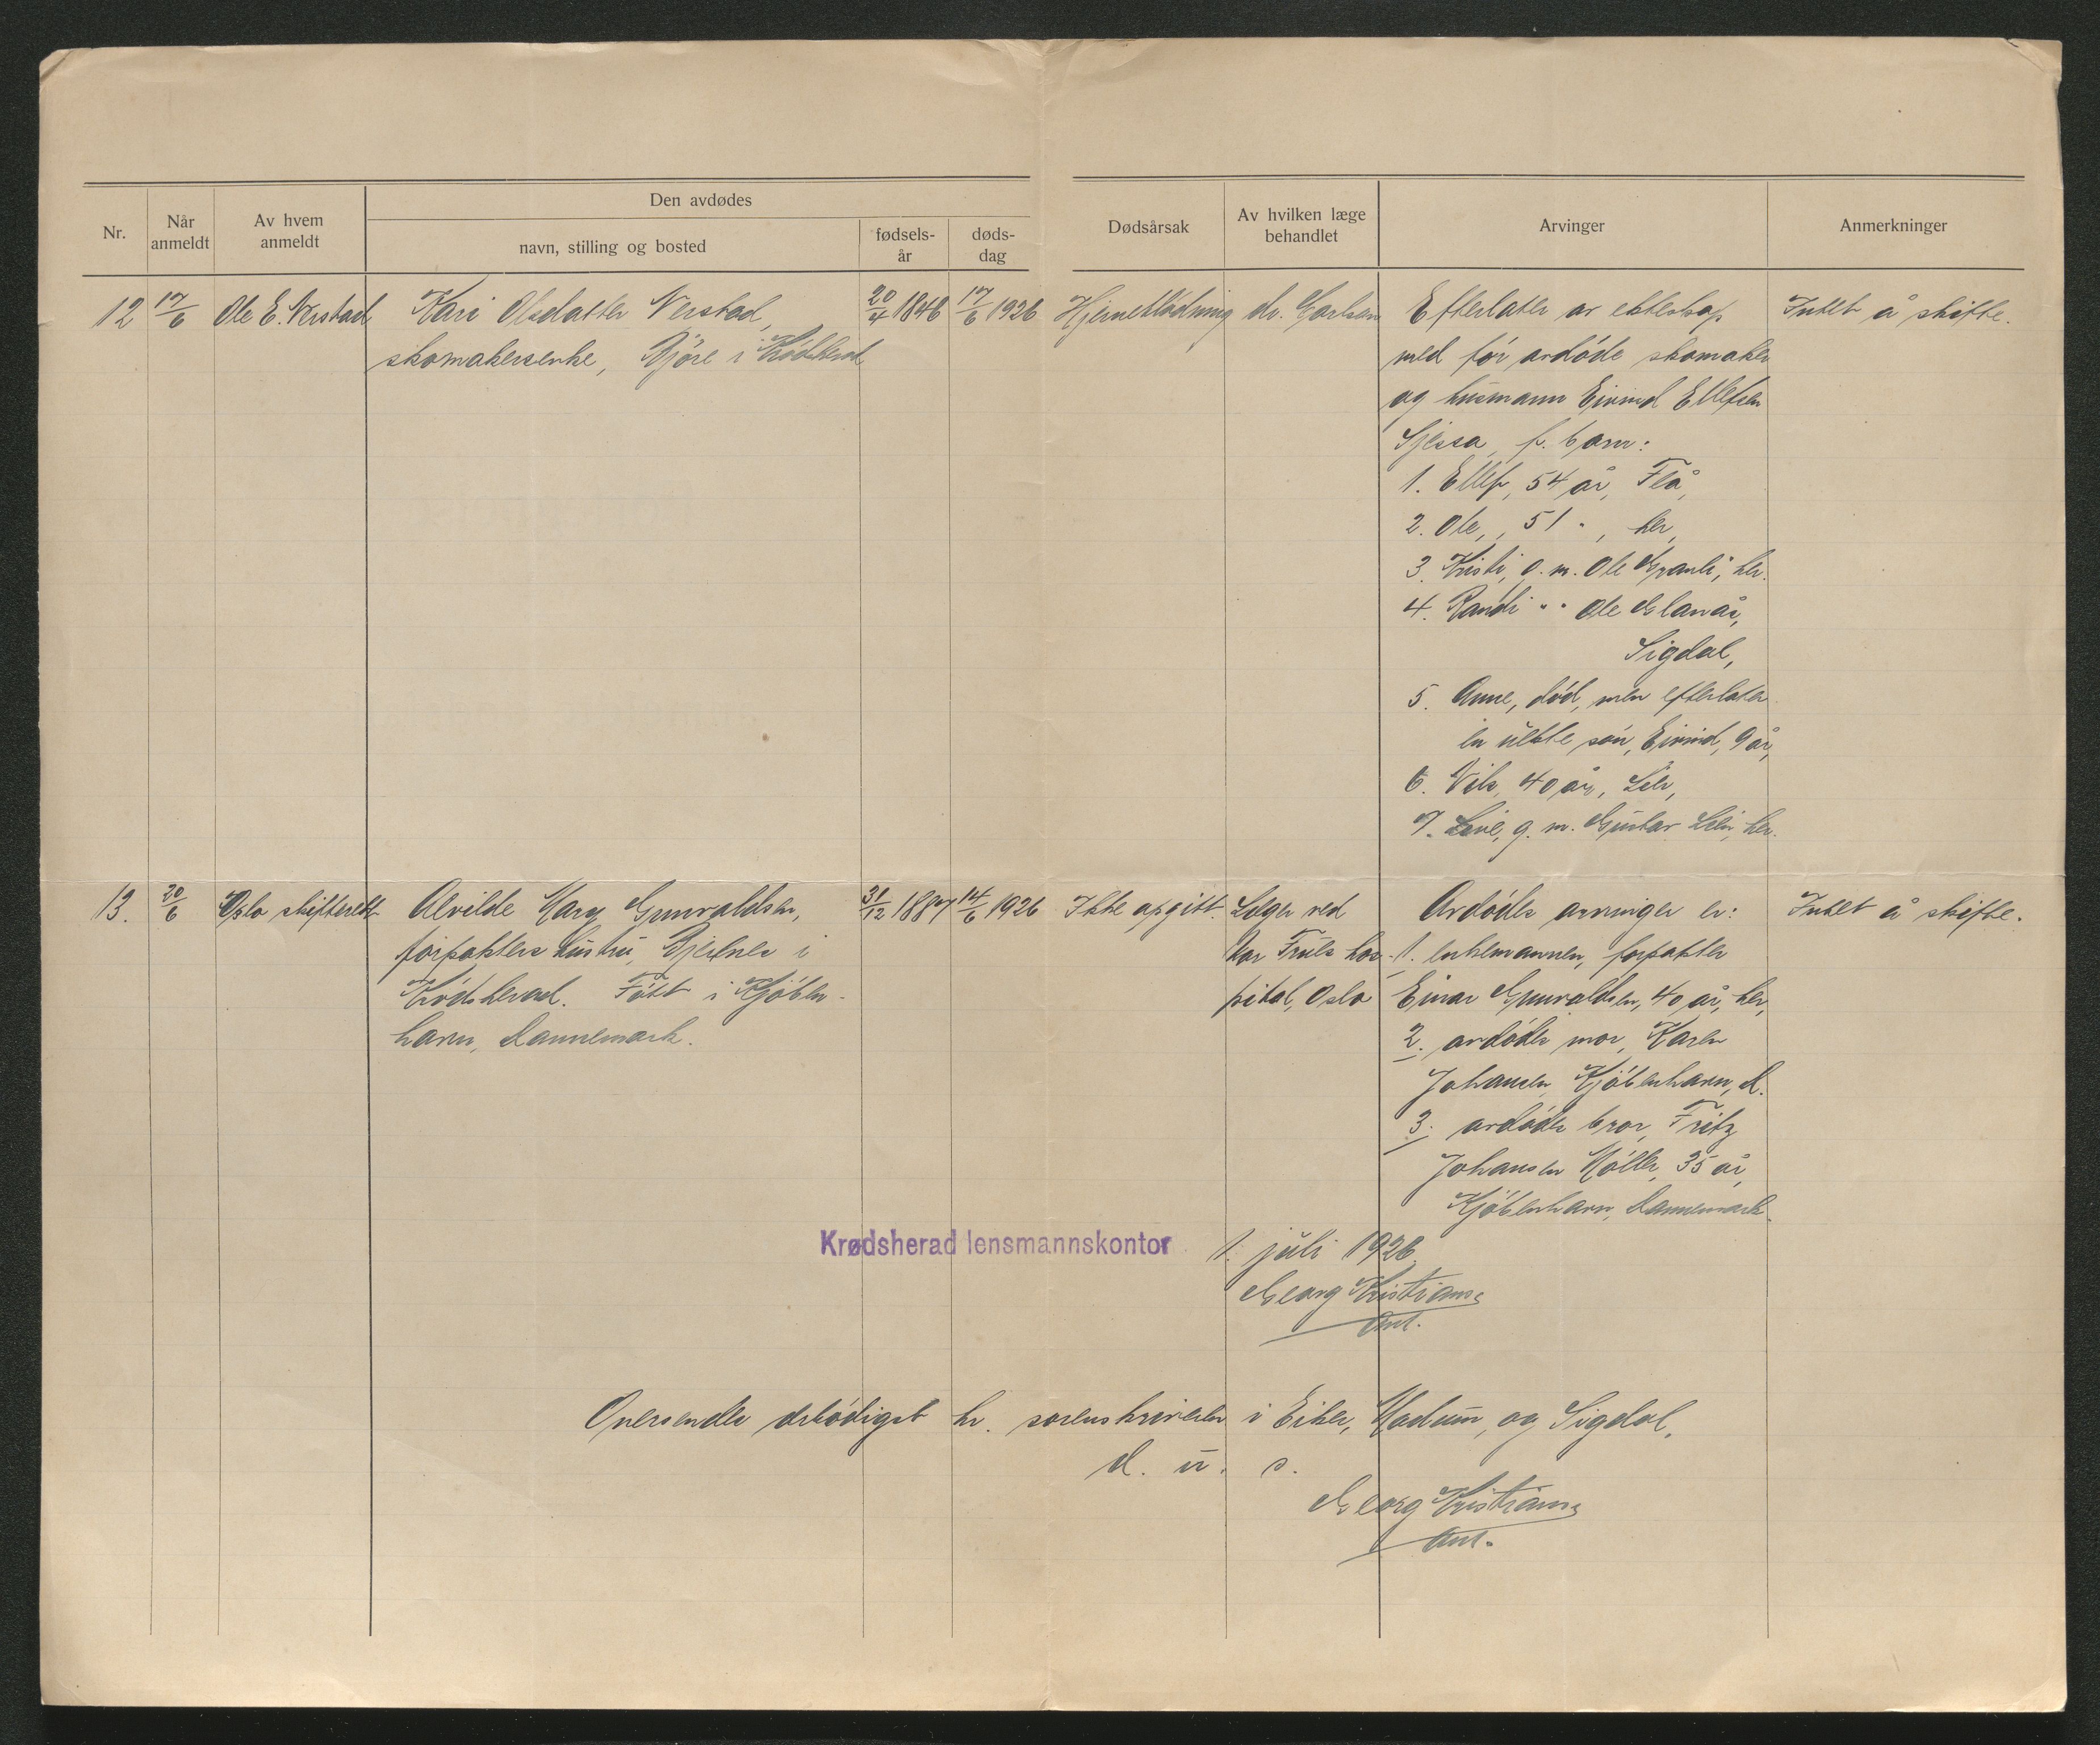 Den avdødes
Nr.
Når anmeldt
Av hvem anmeldt
navn, stilling og bosted
fødsels-år
døds-dag
Dødsårsak
Av hvilken læge behandlet
Arvinger
Anmerkninger
12 17/6 Ole E. Verstad Kari Olsdatter Verstad, 20/4 1846 17/6 1926 Hjerneblødning dr.
skomakerenke, i Krødsherad
Efterlater av ekteskap
med før avdøde skomaker
og husmann Eivind Ellefsen
f. barn:
1. Ellef, 54 år, Flå,
2. Ole, 51 " , her,
3. Kristi, g. m. Ole her.
4. Randi " " Ole
Sigdal,
5. Anne, død, men efterlater
en uekte søn, Eivind, 9 år,
6. Nils, 40 år, Lier,
7. g. m. Gustav Lier, her.
Intet å skifte.
13. 20/6 Oslo skifterett Alvilde Mary Gunvaldsen, 31/12 1887 14/6 1926 Ikke opgitt.
forpakters hustru, i
Krødsherad. Født i Kjøben-
havn, Dannemark.
Læger ved
Vor Frues hos-
pital, Oslo
Avdødes arvinger er:
1. enkemannen, forpakter
Einar Gunvaldsen, 40 år, her,
2. avdødes mor, Karen
Johansen, Kjøbenhavn, D.
3. avdødes bror, Fritz
Johansen Møller, 35 år,
Kjøbenhavn, Dannemark.
Intet å skifte.
Krødsherad lensmannskontor 1. juli 1926
Georg Kristians.
Ant.
Oversendes ærbødigst hr. sorenskriveren i Eiker, Modum, og Sigdal.
D. u. s.
Georg Kristians.
Ant.